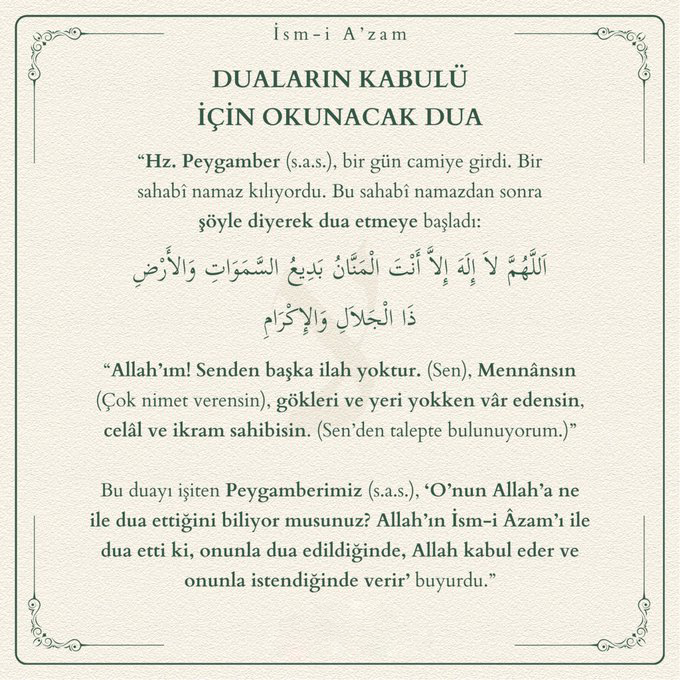 İsm-i A'zam
DUALARIN KABULÜ
İÇİN OKUNACAK DUA
“Hz. Peygamber (s.a.s.), bir gün camiye girdi. Bir
sahabî namaz kılıyordu. Bu sahabî namazdan sonra
şöyle diyerek dua etmeye başladı:
اَللَّهُمَّ لاَ إِلَهَ إِلاَّ أَنْتَ الْمَنَّانُ بَدِيعُ السَّمَوَاتِ وَالأَرْضِ
ذَا الْجَلاَلِ وَالإِكْرَامِ
“Allah’ım! Senden başka ilah yoktur. (Sen), Mennânsın
(Çok nimet verensin), gökleri ve yeri yokken vâr edensin,
celâl ve ikram sahibisin. (Sen’den talepte bulunuyorum.)”
Bu duayı işiten Peygamberimiz (s.a.s.), ‘O’nun Allah’a ne
ile dua ettiğini biliyor musunuz? Allah’ın İsm-i Âzam’ı ile
dua etti ki, onunla dua edildiğinde, Allah kabul eder ve
onunla istendiğinde verir’ buyurdu.”